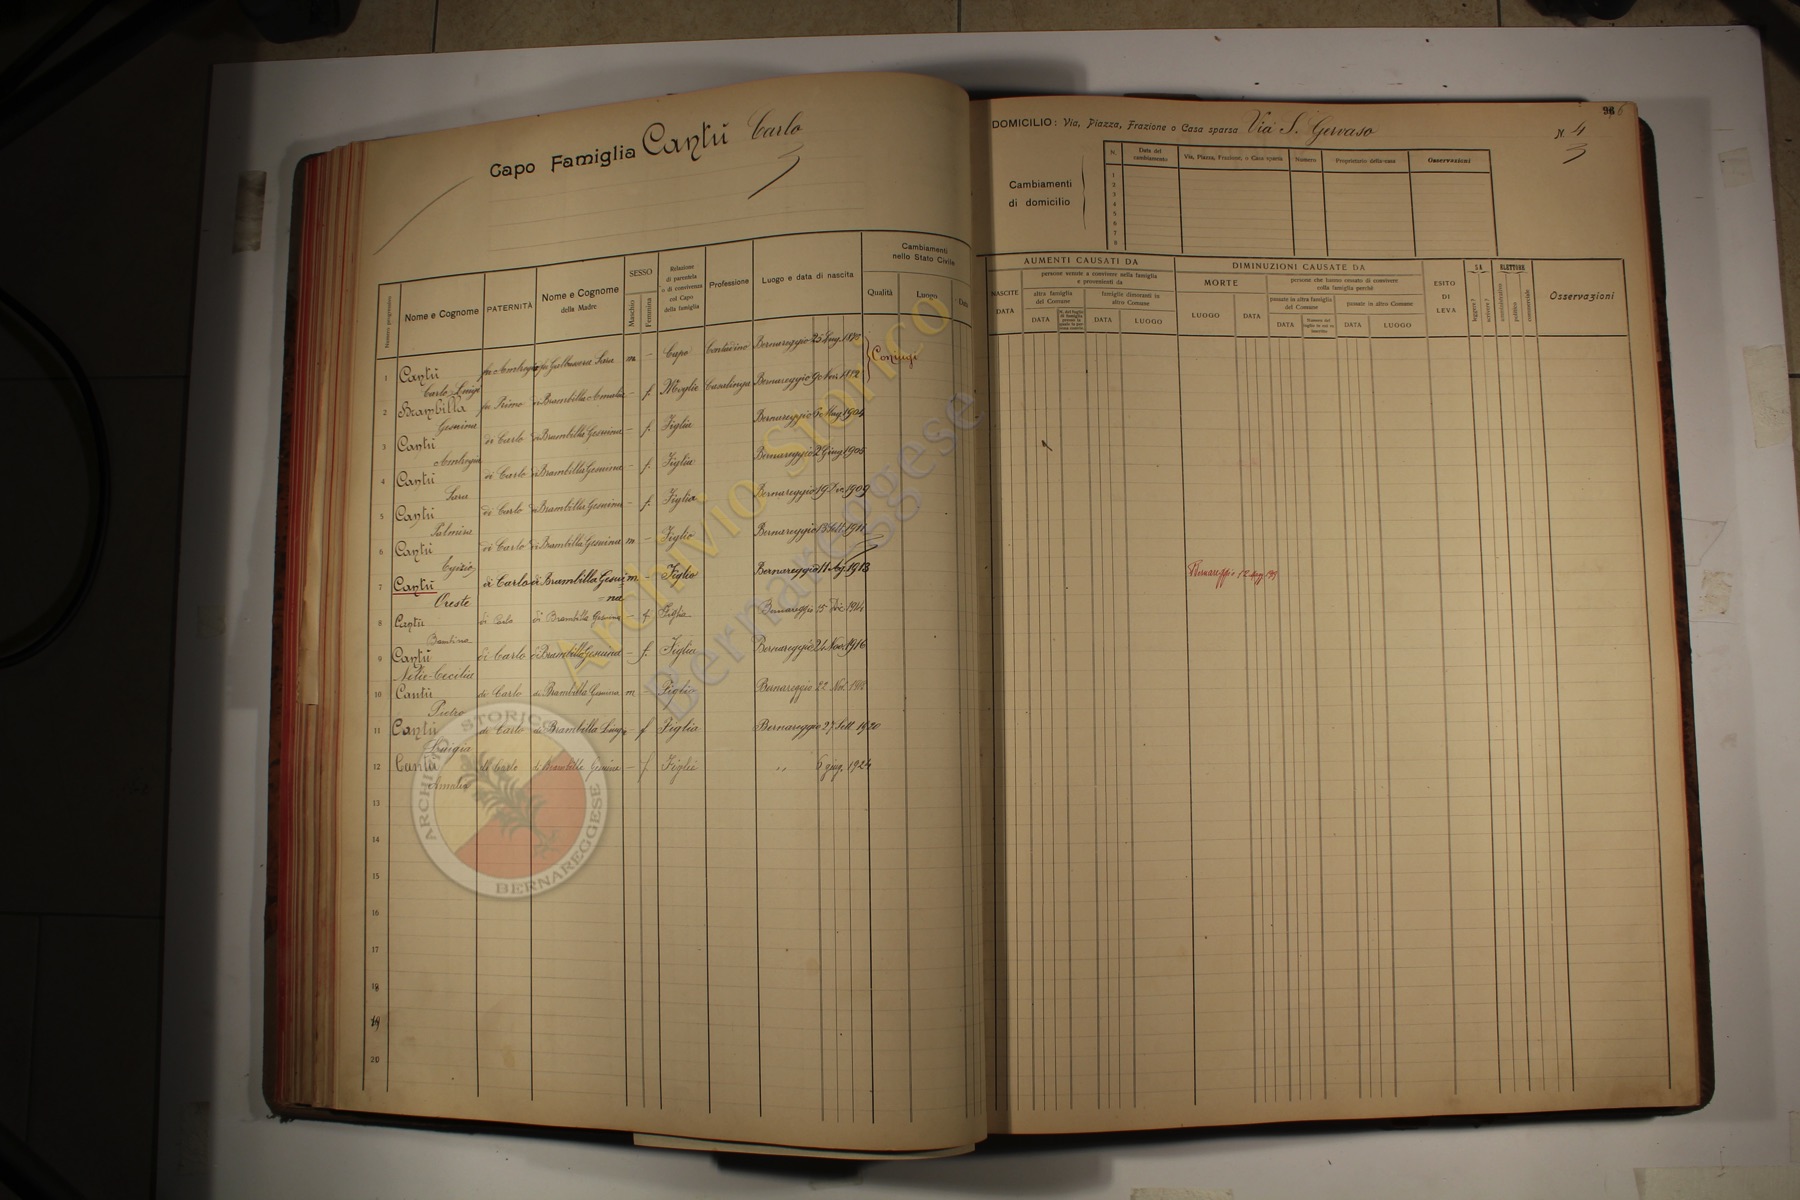 Capo Famiglia Cantù Carlo
Numero progressivo
Nome e Cognome
PATERNITÀ
Nome e Cognome
della Madre
SESSO
Maschio
Femmina
Relazione
di parentela
o di convivenza
col Capo
della famiglia
Professione
Luogo e data di nascita
Cambiamenti
nello Stato Civile
Qualità
Luogo
Data
1 Cantù Carlo Luigi fu Ambrogio fu Galbussera Sara m - Capo Contadino Bernareggio 25 1880
Coniugi
2 Brambilla Gesuina fu Primo di Brambilla Amalia - f. Moglie Casalinga Bernareggio 9 1882
3 Cantù Ambrogia di Carlo di Brambilla Gesuina - f. Figlia Bernareggio 6 Mag. 1904
4 Cantù Sara di Carlo di Brambilla Gesuina - f. Figlia Bernareggio 2 Giug. 1905
5 Cantù Palmira di Carlo di Brambilla Gesuina - f. Figlia Bernareggio 19 Dic. 1909
6 Cantù Egizio di Carlo di Brambilla Gesuina m - Figlio Bernareggio 13 Sett. 1911
7 Cantù Oreste di Carlo di Brambilla Gesui=na m - Figlio Bernareggio 11 Ag. 1913
8 Cantù Bambina di Carlo di Brambilla Gesuina - f. Figlia Bernareggio 15 Dic. 1914
9 Cantù Cecilia di Carlo di Brambilla Gesuina - f. Figlia Bernareggio 21 Nov. 1916
10 Cantù Pietro di Carlo di Brambilla Gesuina m Figlio Bernareggio 22 Nov.
11 Cantù Luigia di Carlo di Brambilla - f Figlia Bernareggio 27 Sett. 1920
12 Cantù Amalia di Carlo di Brambilla Gesuina - f Figlia ,, 6 giug. 1924
13
14
15
16
17
18
19
20
DOMICILIO: Via, Piazza, Frazione o Casa sparsa Via S. Gervaso
N. 4
3
96
Cambiamenti
di domicilio
N.
Data del
cambiamento
Via, Piazza, Frazione, o Casa sparsa
Numero
Proprietario della casa
Osservazioni
1
2
3
4
5
6
7
8
AUMENTI CAUSATI DA
NASCITE
DATA
persone venute a convivere nella famiglia
e provenienti da
altra famiglia
del Comune
DATA
famiglie dimoranti in
altro Comune
DATA
LUOGO
DIMINUZIONI CAUSATE DA
MORTE
LUOGO
DATA
persone che hanno cessato di convivere
colla famiglia perchè
passate in altra famiglia
del Comune
DATA
passate in altro Comune
DATA
LUOGO
ESITO
DI
LEVA
SA
leggere?
scrivere?
ELETTORE
amministrativo
politico
commerciale
Osservazioni
Bernareggio 12
Archivio Storico
Bernareggese
ARCHIVIO STORICO
BERNAREGGESE